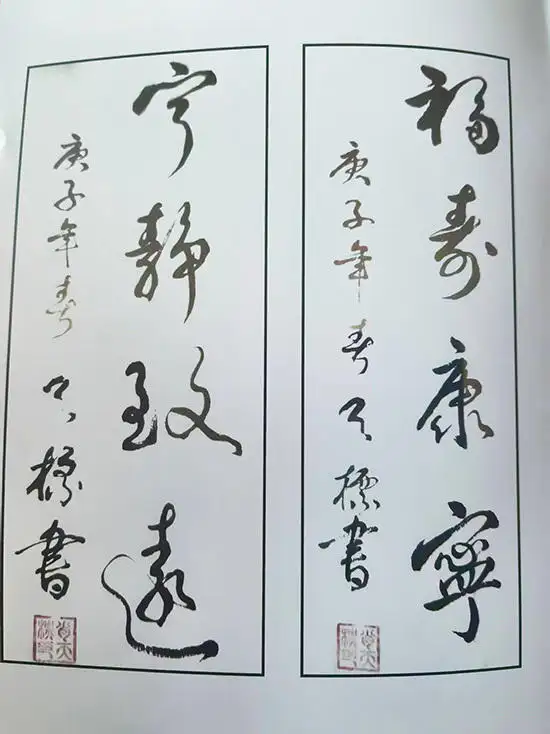 福寿康寧
庚子年春 標書
宁靜致遠
庚子年春 標書